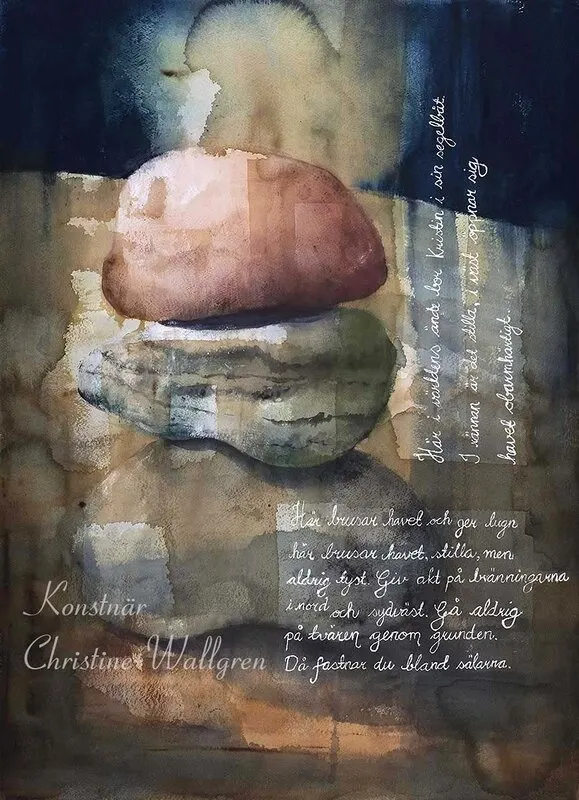 Här i världens ände bor Kristin i sin segelbåt.
I vännan är det stilla, i väst öppnar sig
havet obarmhärtigt.
Här brusar havet och ger lugn
här brusar havet, stilla, men
aldrig tyst. Giv akt på bränningarna
i nord och sydväst. Gå aldrig
på tvären genom grunden.
Då fastnar du bland sälarna.
Konstnär
Christine Wallgren